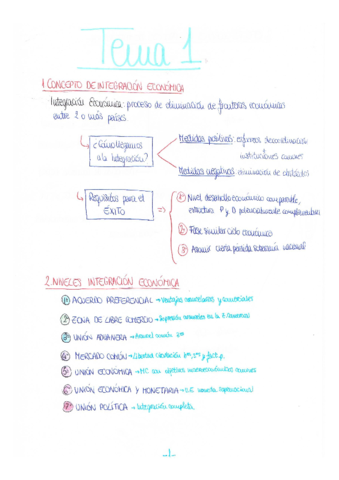 Tema 1.
1. CONCEPTO DE INTEGRACIÓN ECONÓMICA
Integración Económica: proceso de eliminación de fronteras económicas
entre 2 o más países
¿Cómo llegamos
a la integración?
Medidas positivas: esfuerzos de coordinación
instituciones comunes
Medidas negativas: eliminación de obstáculos
Requisitos para el
ÉXITO
=>
1 Nivel desarrollo económico comparable,
estructura P y D potencialmente complementaria
2 Fase similar ciclo económico
3 Asumir cierta pérdida soberanía nacional
2. NIVELES INTEGRACIÓN ECONÓMICA
1 ACUERDO PREFERENCIAL → Ventajas arancelarias y comerciales
2 ZONA DE LIBRE COMERCIO →
3 UNIÓN ADUANERA → Arancel común
4 MERCADO COMÚN → Libertad circulación
5 UNIÓN ECONÓMICA → MC con objetivos macroeconómicos comunes
6 UNIÓN ECONÓMICA Y MONETARIA →
7 UNIÓN POLÍTICA → Integración completa
-1-